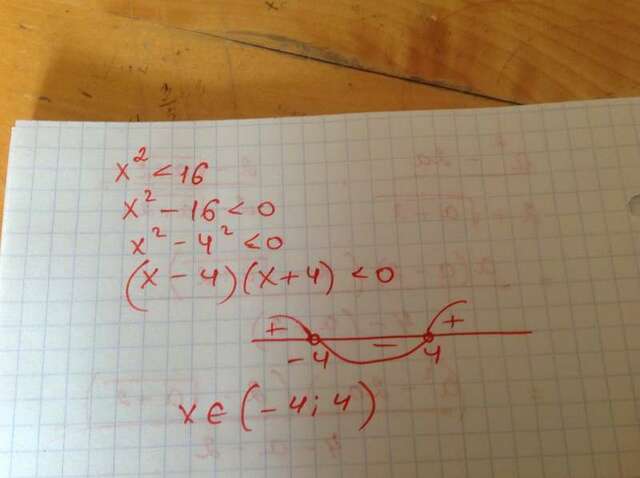 x² < 16
x² - 16 < 0
x² - 4² < 0
(x - 4)(x + 4) < 0
+ - +
-4 4
x ∈ (-4; 4)